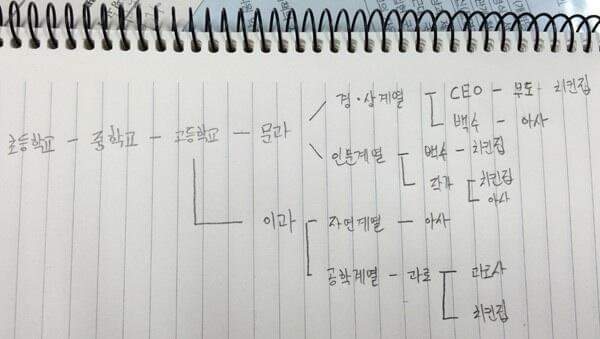 경·상계열 - CEO - 부도 - 치킨집
백수 - 아사
초등학교 - 중학교 - 고등학교 - 문과
인문계열 - 백수 - 치킨집
작가 - 치킨집
아사
이과 - 자연계열 - 아사
공학계열 - 과로 - 과로사
치킨집